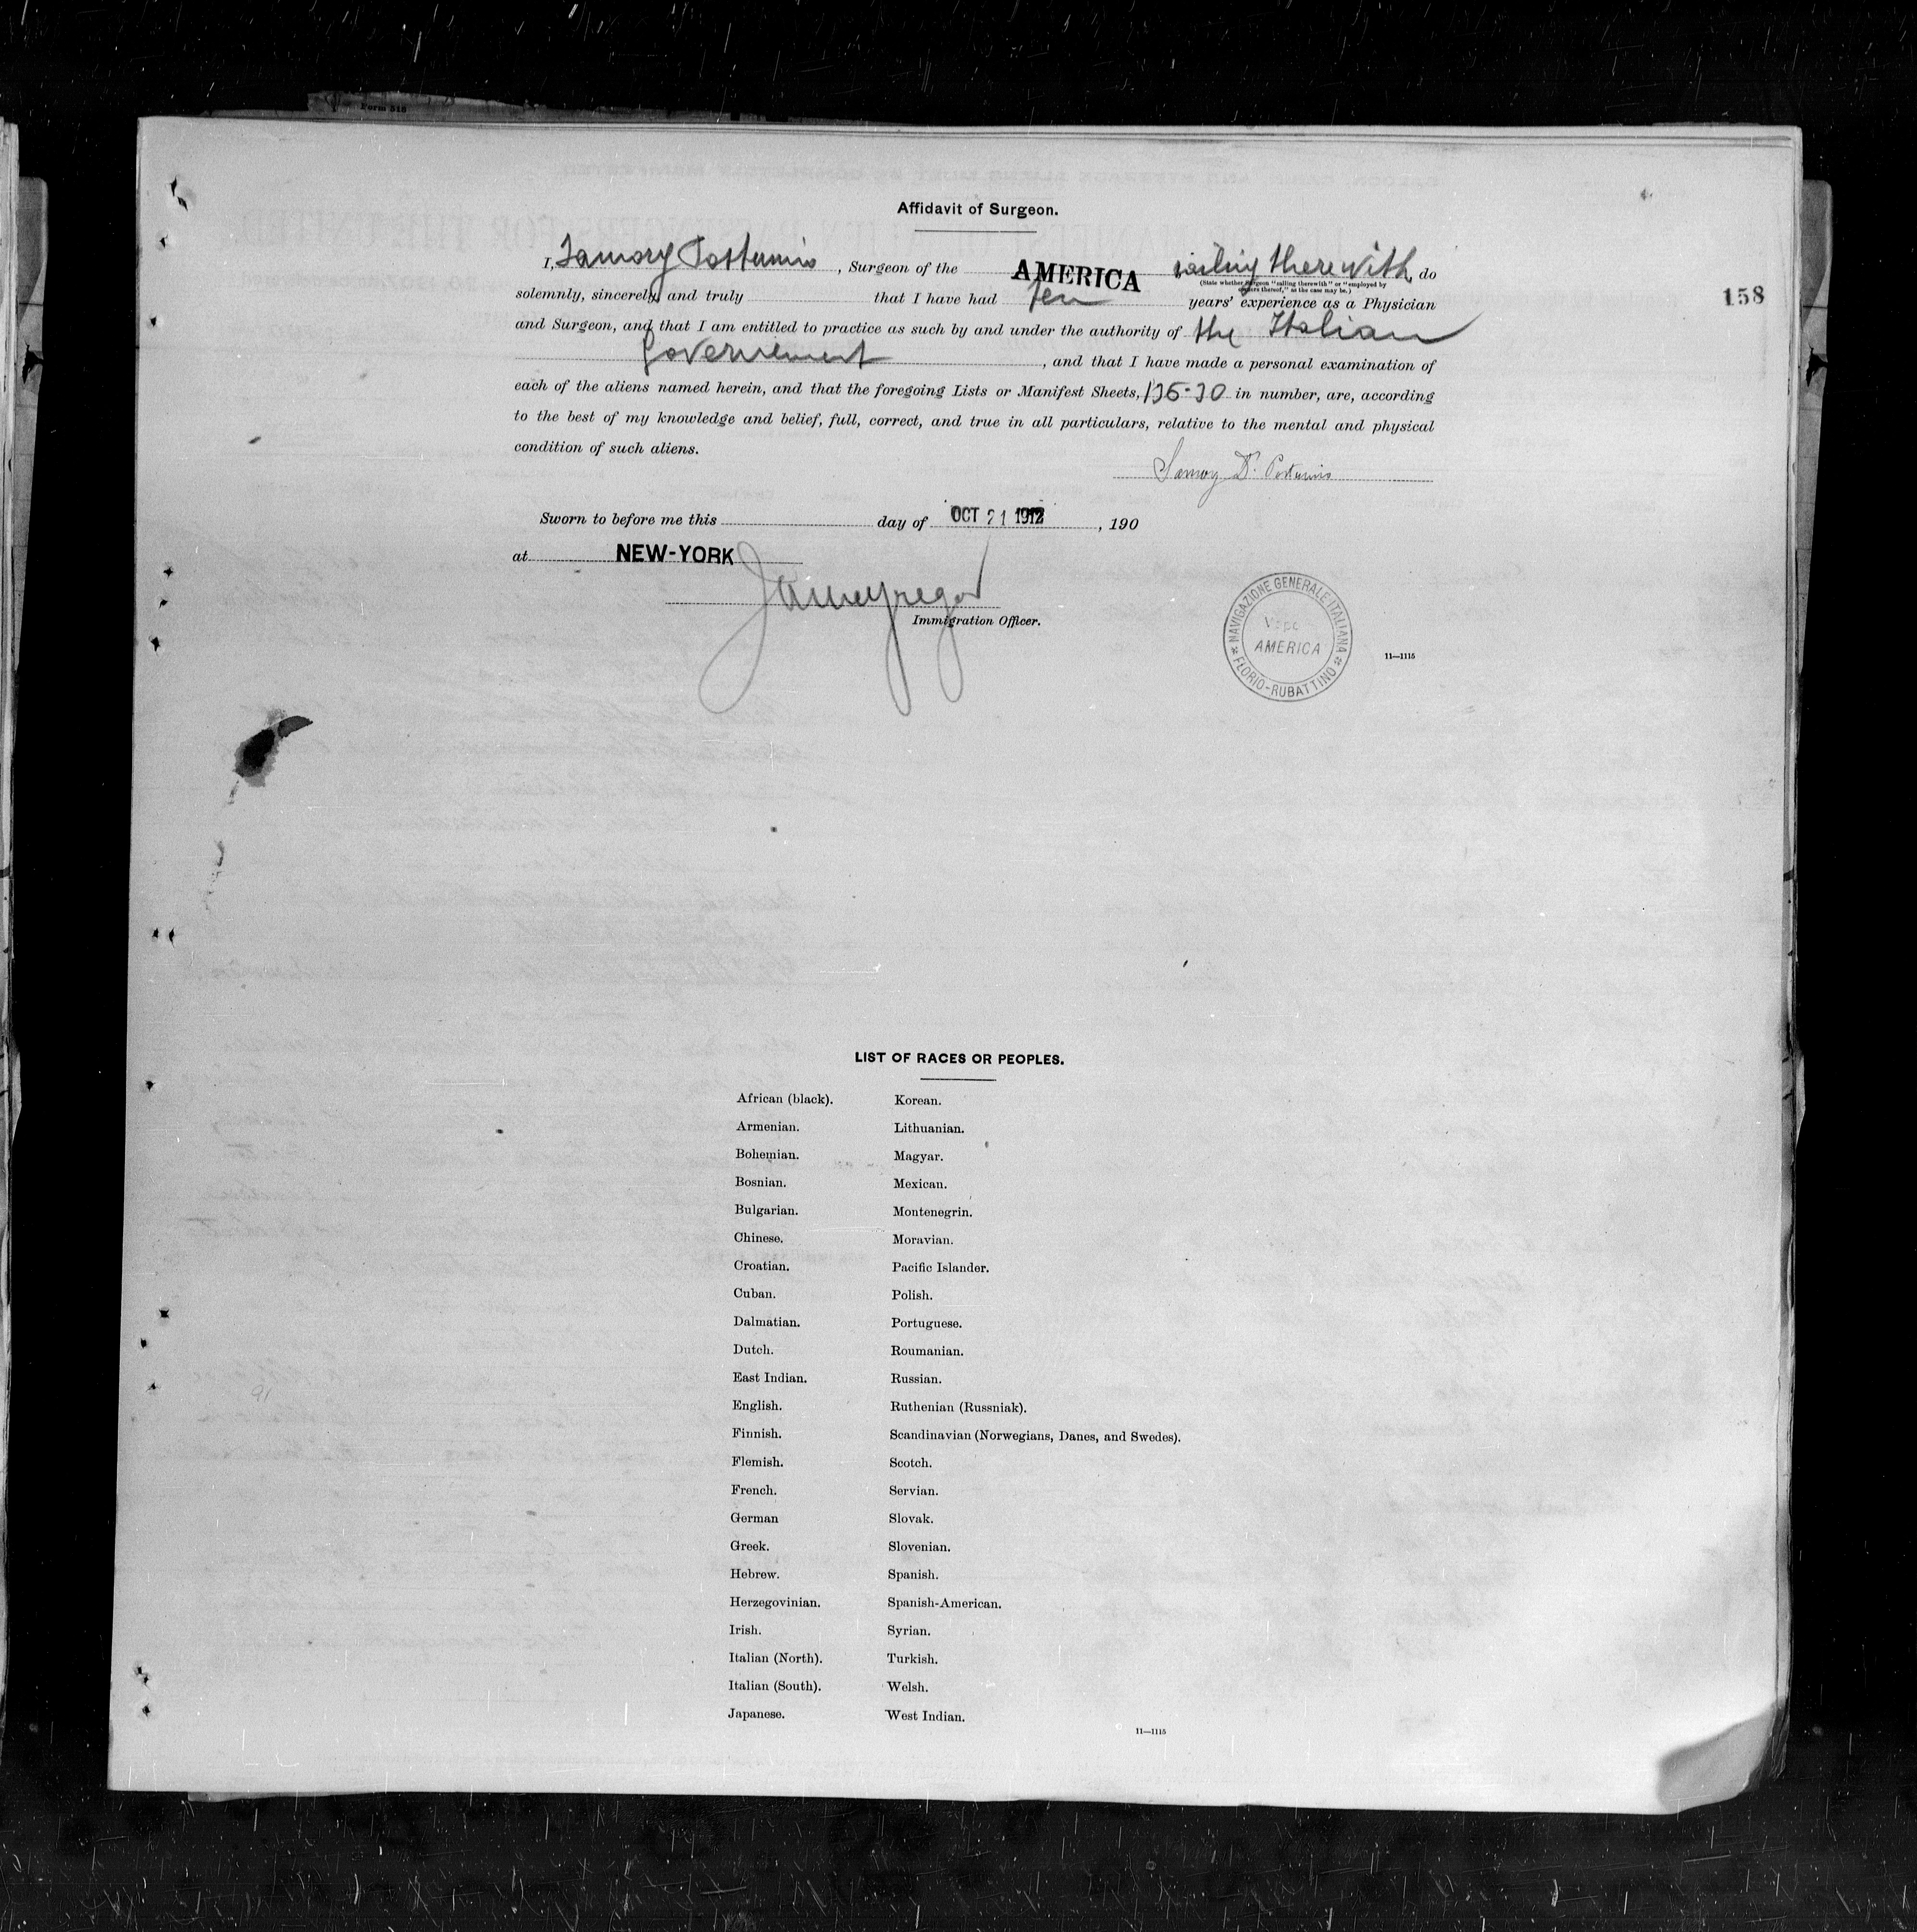 Form 516
Affidavit of Surgeon.
I, Samory Postumio, Surgeon of the AMERICA sailing therewith, do
(State whether Surgeon "sailing therewith" or "employed by
owners thereof," as the case may be.)
158
solemnly, sincerely, and truly that I have had ten years' experience as a Physician
and Surgeon, and that I am entitled to practice as such by and under the authority of the Italian
Governement, and that I have made a personal examination of
each of the aliens named herein, and that the foregoing Lists or Manifest Sheets, in number, are, according
to the best of my knowledge and belief, full, correct, and true in all particulars, relative to the mental and physical
condition of such aliens.
Samory Dr. Postumio
Sworn to before me this day of OCT 21 1912, 190
at NEW-YORK
Immigration Officer.
NAVIGAZIONE GENERALE ITALIANA
AMERICA
FLORIO-RUBATTINO
11—1115
LIST OF RACES OR PEOPLES.
African (black). Korean.
Armenian. Lithuanian.
Bohemian. Magyar.
Bosnian. Mexican.
Bulgarian. Montenegrin.
Chinese. Moravian.
Croatian. Pacific Islander.
Cuban. Polish.
Dalmatian. Portuguese.
Dutch. Roumanian.
East Indian. Russian.
English. Ruthenian (Russniak).
Finnish. Scandinavian (Norwegians, Danes, and Swedes).
Flemish. Scotch.
French. Servian.
German Slovak.
Greek. Slovenian.
Hebrew. Spanish.
Herzegovinian. Spanish-American.
Irish. Syrian.
Italian (North). Turkish.
Italian (South). Welsh.
Japanese. West Indian.
11—1115
91